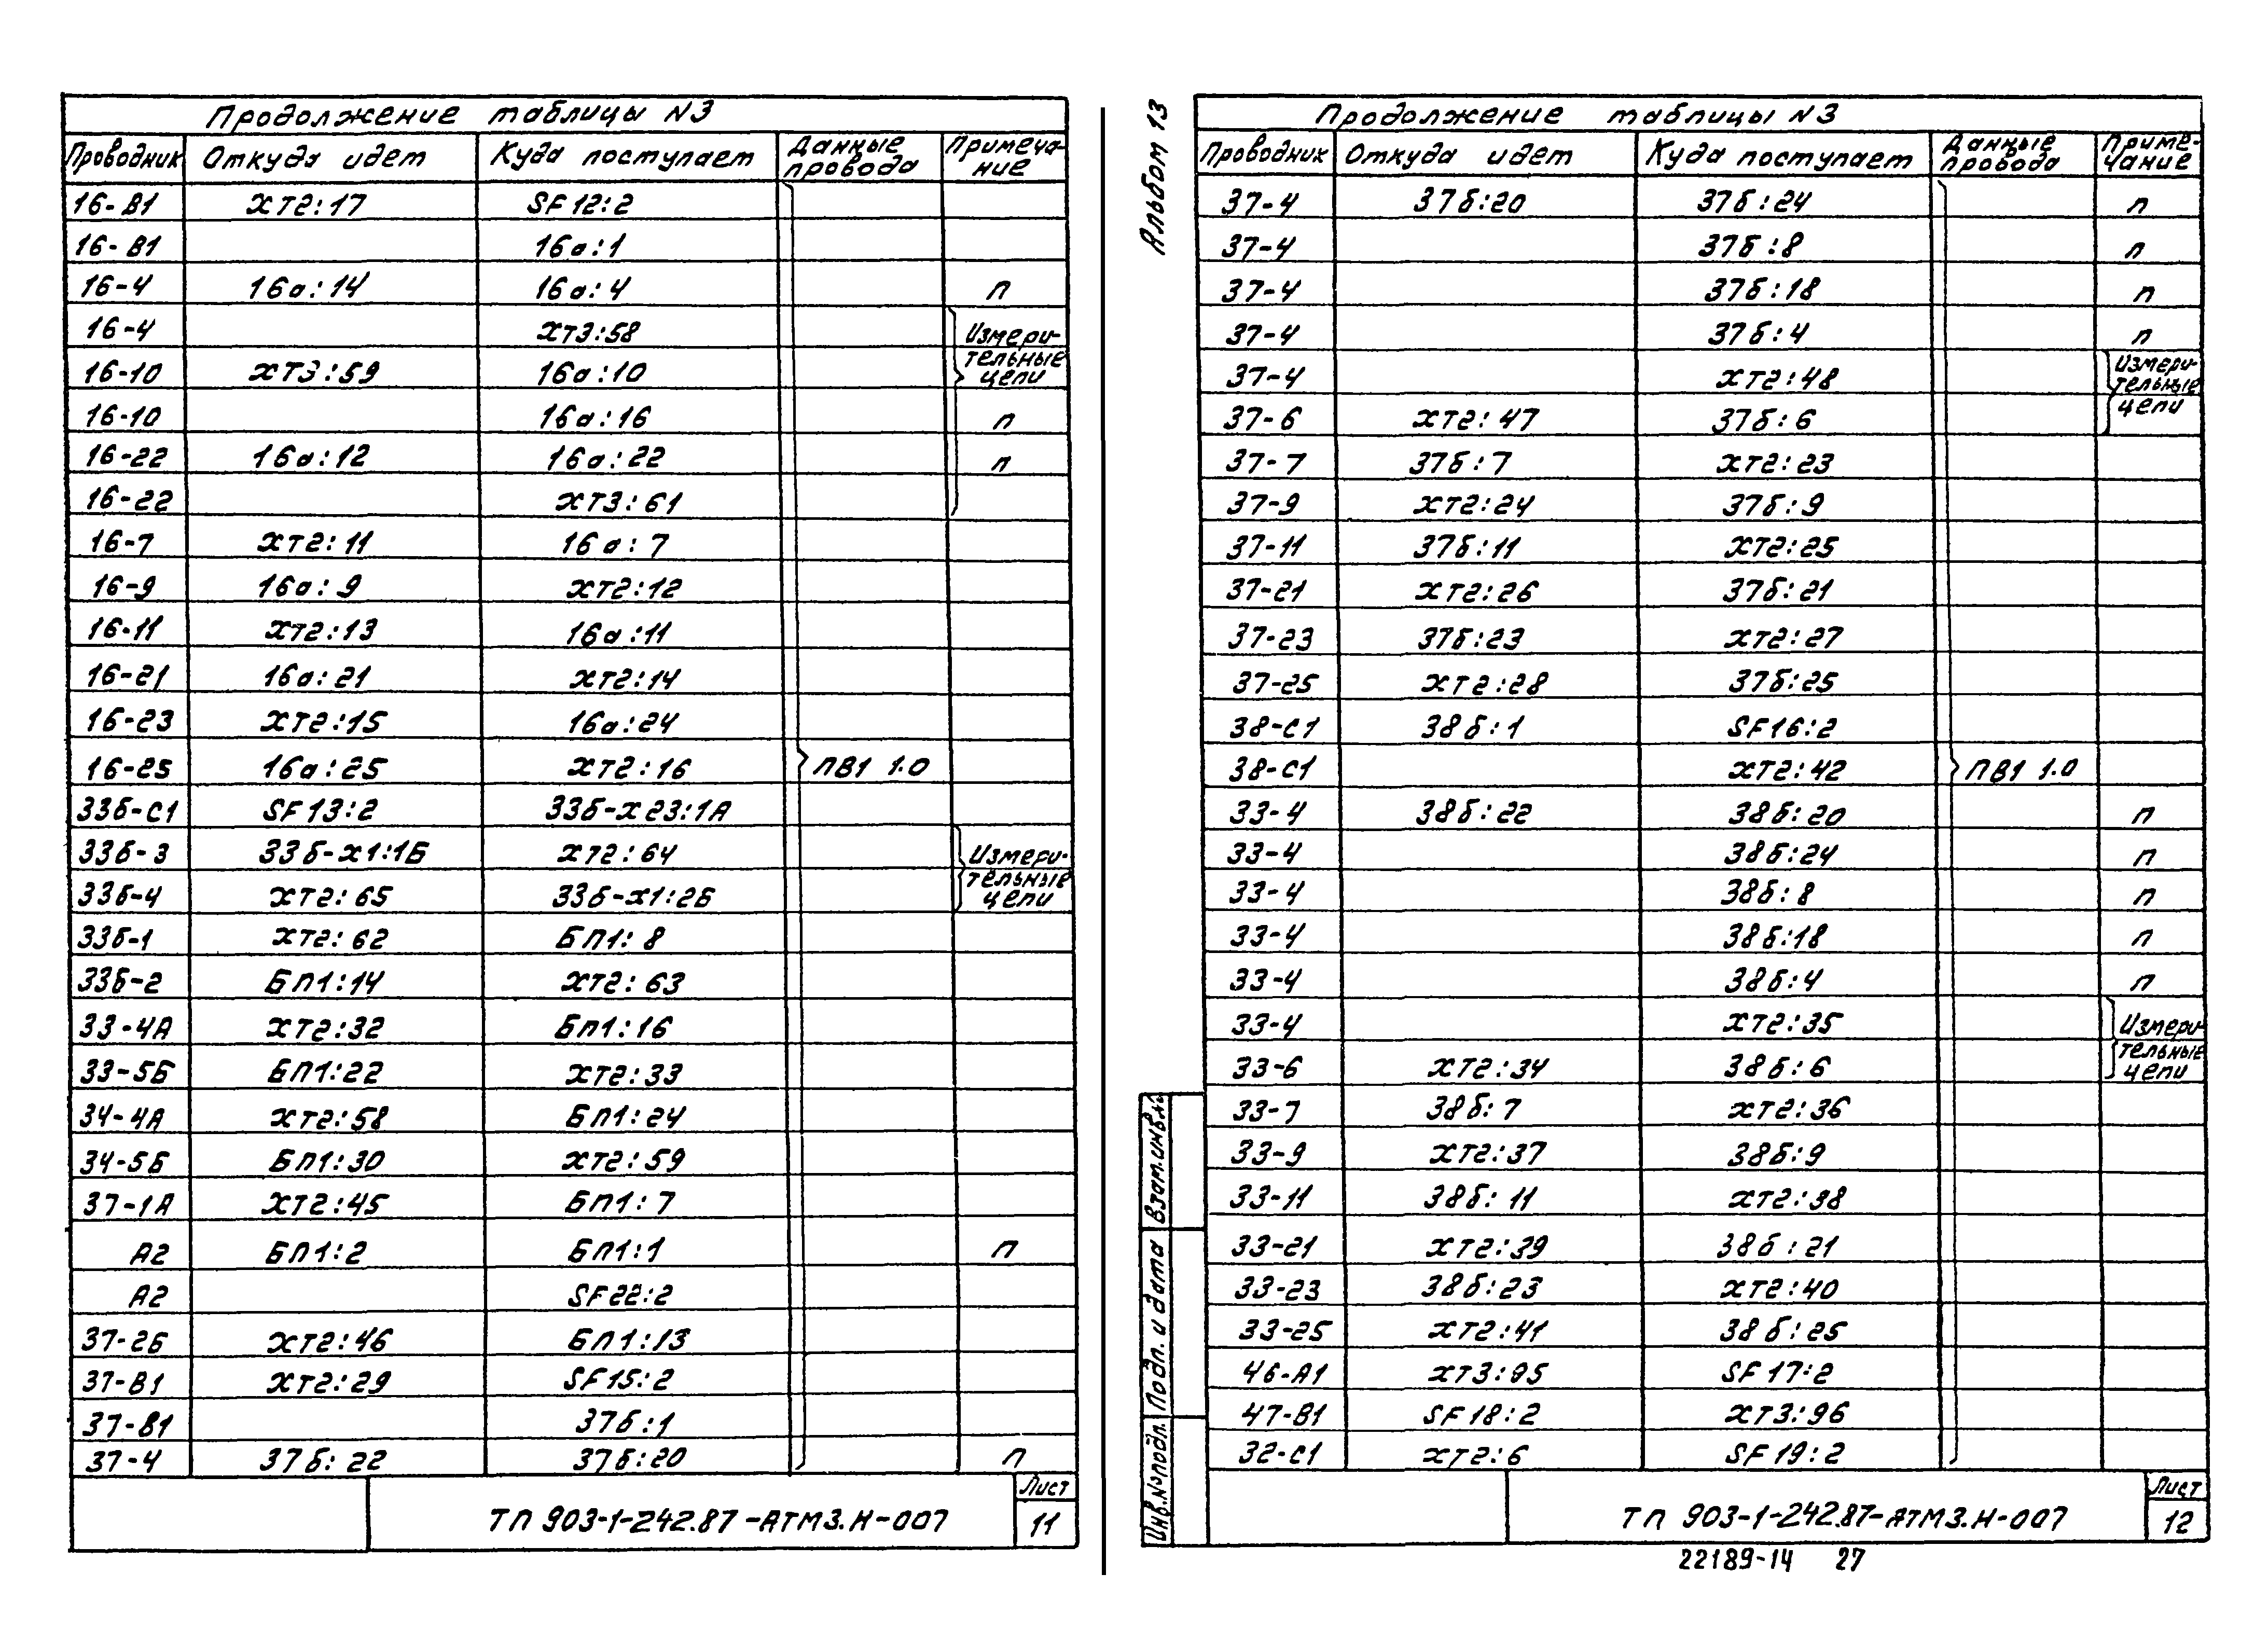 Продолжение таблицы N3
Проводник Откуда идет Куда поступает Данные провода Примечание
16-В1 ХТ2:17 SF12:2
16-В1 16а:1
16-4 16а:14 16а:4 п
16-4 ХТ3:58 Измери-
тельные
16-10 ХТ3:59 16а:10 цепи
16-10 16а:16 п
16-22 16а:12 16а:22 п
16-22 ХТ3:61
16-7 ХТ2:11 16а:7
16-9 16а:9 ХТ2:12
16-11 ХТ2:13 16а:11
16-21 16а:21 ХТ2:14
16-23 ХТ2:15 16а:24
16-25 16а:25 ХТ2:16 ПВ1 1.0
33б-С1 SF13:2 33б-Х23:1А
33б-3 33б-Х1:1Б ХТ2:64 Измери-
тельные
33б-4 ХТ2:65 33б-Х1:2Б цепи
33б-1 ХТ2:62 БП1:8
33б-2 БП1:14 ХТ2:63
33-4А ХТ2:32 БП1:16
33-5Б БП1:22 ХТ2:33
34-4А ХТ2:58 БП1:24
34-5Б БП1:30 ХТ2:59
37-1А ХТ2:45 БП1:7
А2 БП1:2 БП1:1 п
А2 SF22:2
37-2Б ХТ2:46 БП1:13
37-В1 ХТ2:29 SF15:2
37-В1 37б:1
37-4 37б:22 37б:20 п
ТП 903-1-242.87-АТМ3.Н-007
Лист
11
Альбом 13
Продолжение таблицы N3
Проводник Откуда идет Куда поступает Данные провода Приме-чание
37-4 37б:20 37б:24 п
37-4 37б:8 п
37-4 37б:18 п
37-4 37б:4 п
37-4 ХТ2:48 Измери-
тельные
37-6 ХТ2:47 37б:6 цепи
37-7 37б:7 ХТ2:23
37-9 ХТ2:24 37б:9
37-11 37б:11 ХТ2:25
37-21 ХТ2:26 37б:21
37-23 37б:23 ХТ2:27
37-25 ХТ2:28 37б:25
38-С1 38б:1 SF16:2
38-С1 ХТ2:42 ПВ1 1.0
33-4 38б:22 38б:20 п
33-4 38б:24 п
33-4 38б:8 п
33-4 38б:18 п
33-4 38б:4 п
33-4 ХТ2:35 Измери-
тельные
33-6 ХТ2:34 38б:6 цепи
33-7 38б:7 ХТ2:36
33-9 ХТ2:37 38б:9
33-11 38б:11 ХТ2:38
33-21 ХТ2:39 38б:21
33-23 38б:23 ХТ2:40
33-25 ХТ2:41 38б:25
46-А1 ХТ3:95 SF17:2
47-В1 SF18:2 ХТ3:96
32-С1 ХТ2:6 SF19:2
Взам.инв.N
Подп. и дата
Инв.Nподл.
ТП 903-1-242.87-АТМ3.Н-007
Лист
12
22189-14 27